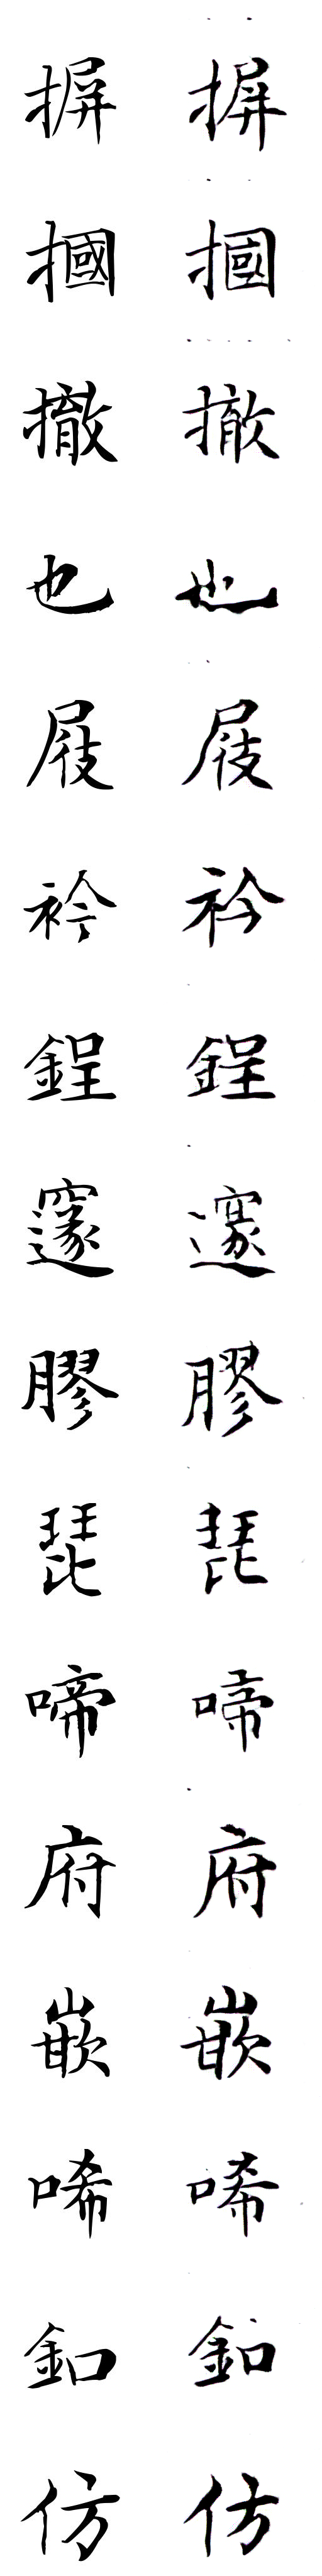 摒 摒
摑 摑
撤 撤
也 也
屐 屐
衿 衿
鋥 鋥
邃 邃
膠 膠
琵 琵
啼 啼
府 府
嵌 嵌
唏 唏
釦 釦
仿 仿